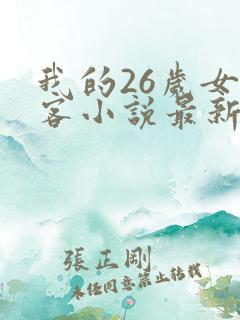 我的26歲女
客小說最新
張正剛
未经同意禁止转载